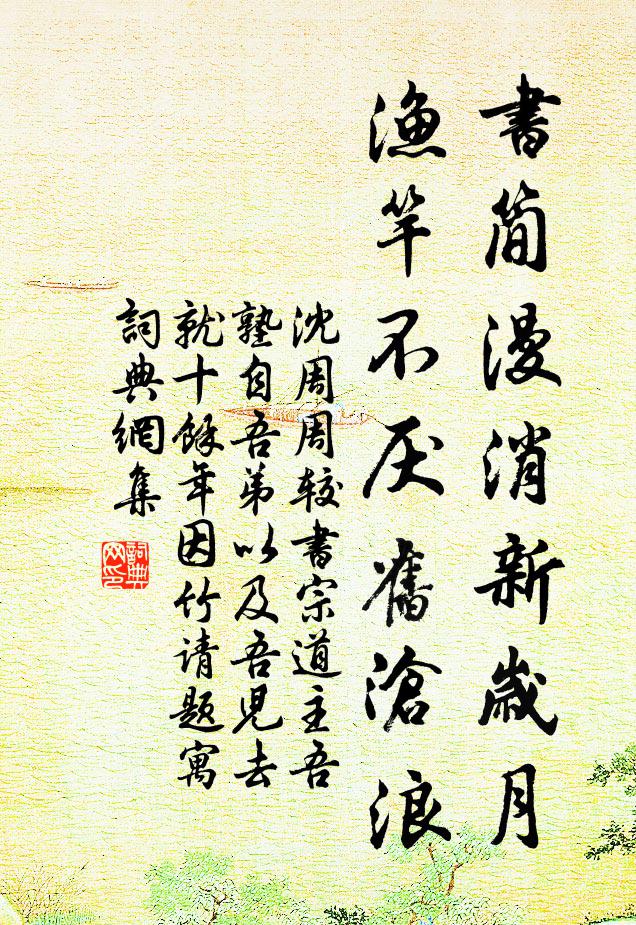 書简漫消新歲月
漁竿不厌舊滄浪
沈周周较書宗道主吾
塾自吾弟以及吾児去
就十餘年因竹请题寓
詞典網集
詞典
网印